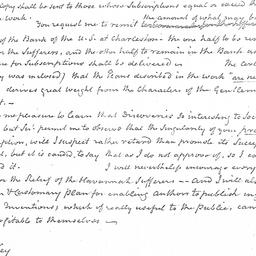 Copy shall be sent to those whose Subscriptions equal or exceed the
work. the amount of what may be
You request me to remit
of the Bank of the U.S. at Charleston. the one half to be
the Sufferers, and the other half to remain in the Bank as
for Subscriptions shall be delivered in The
was inclosed) that the Plans described in the work "are
derives great weight from the Characters of the Gentlemen
t. —
me pleasure to learn that Discoveries so interesting to Soci
but Sir! permit me to observe that the Singularity of your
ption, will I suspect rather retard than promote its Succe
d, but it is candid, to say that as I do not approve of, so I ca
d it. I will nevertheless encourage every
for the Relief of the Savannah Sufferers — And I will als
& customary Plan for enabling Authors to publish
Inventions, which if really useful to the Public, can
ofitable to themselves —
ey